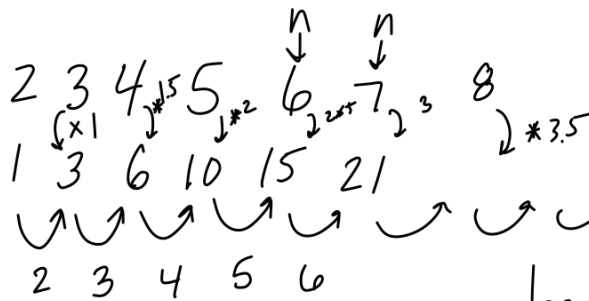 n n
2 3 4 5 6 7 8
×1 *1.5 *2 3 *3.5
1 3 6 10 15 21
2 3 4 5 6